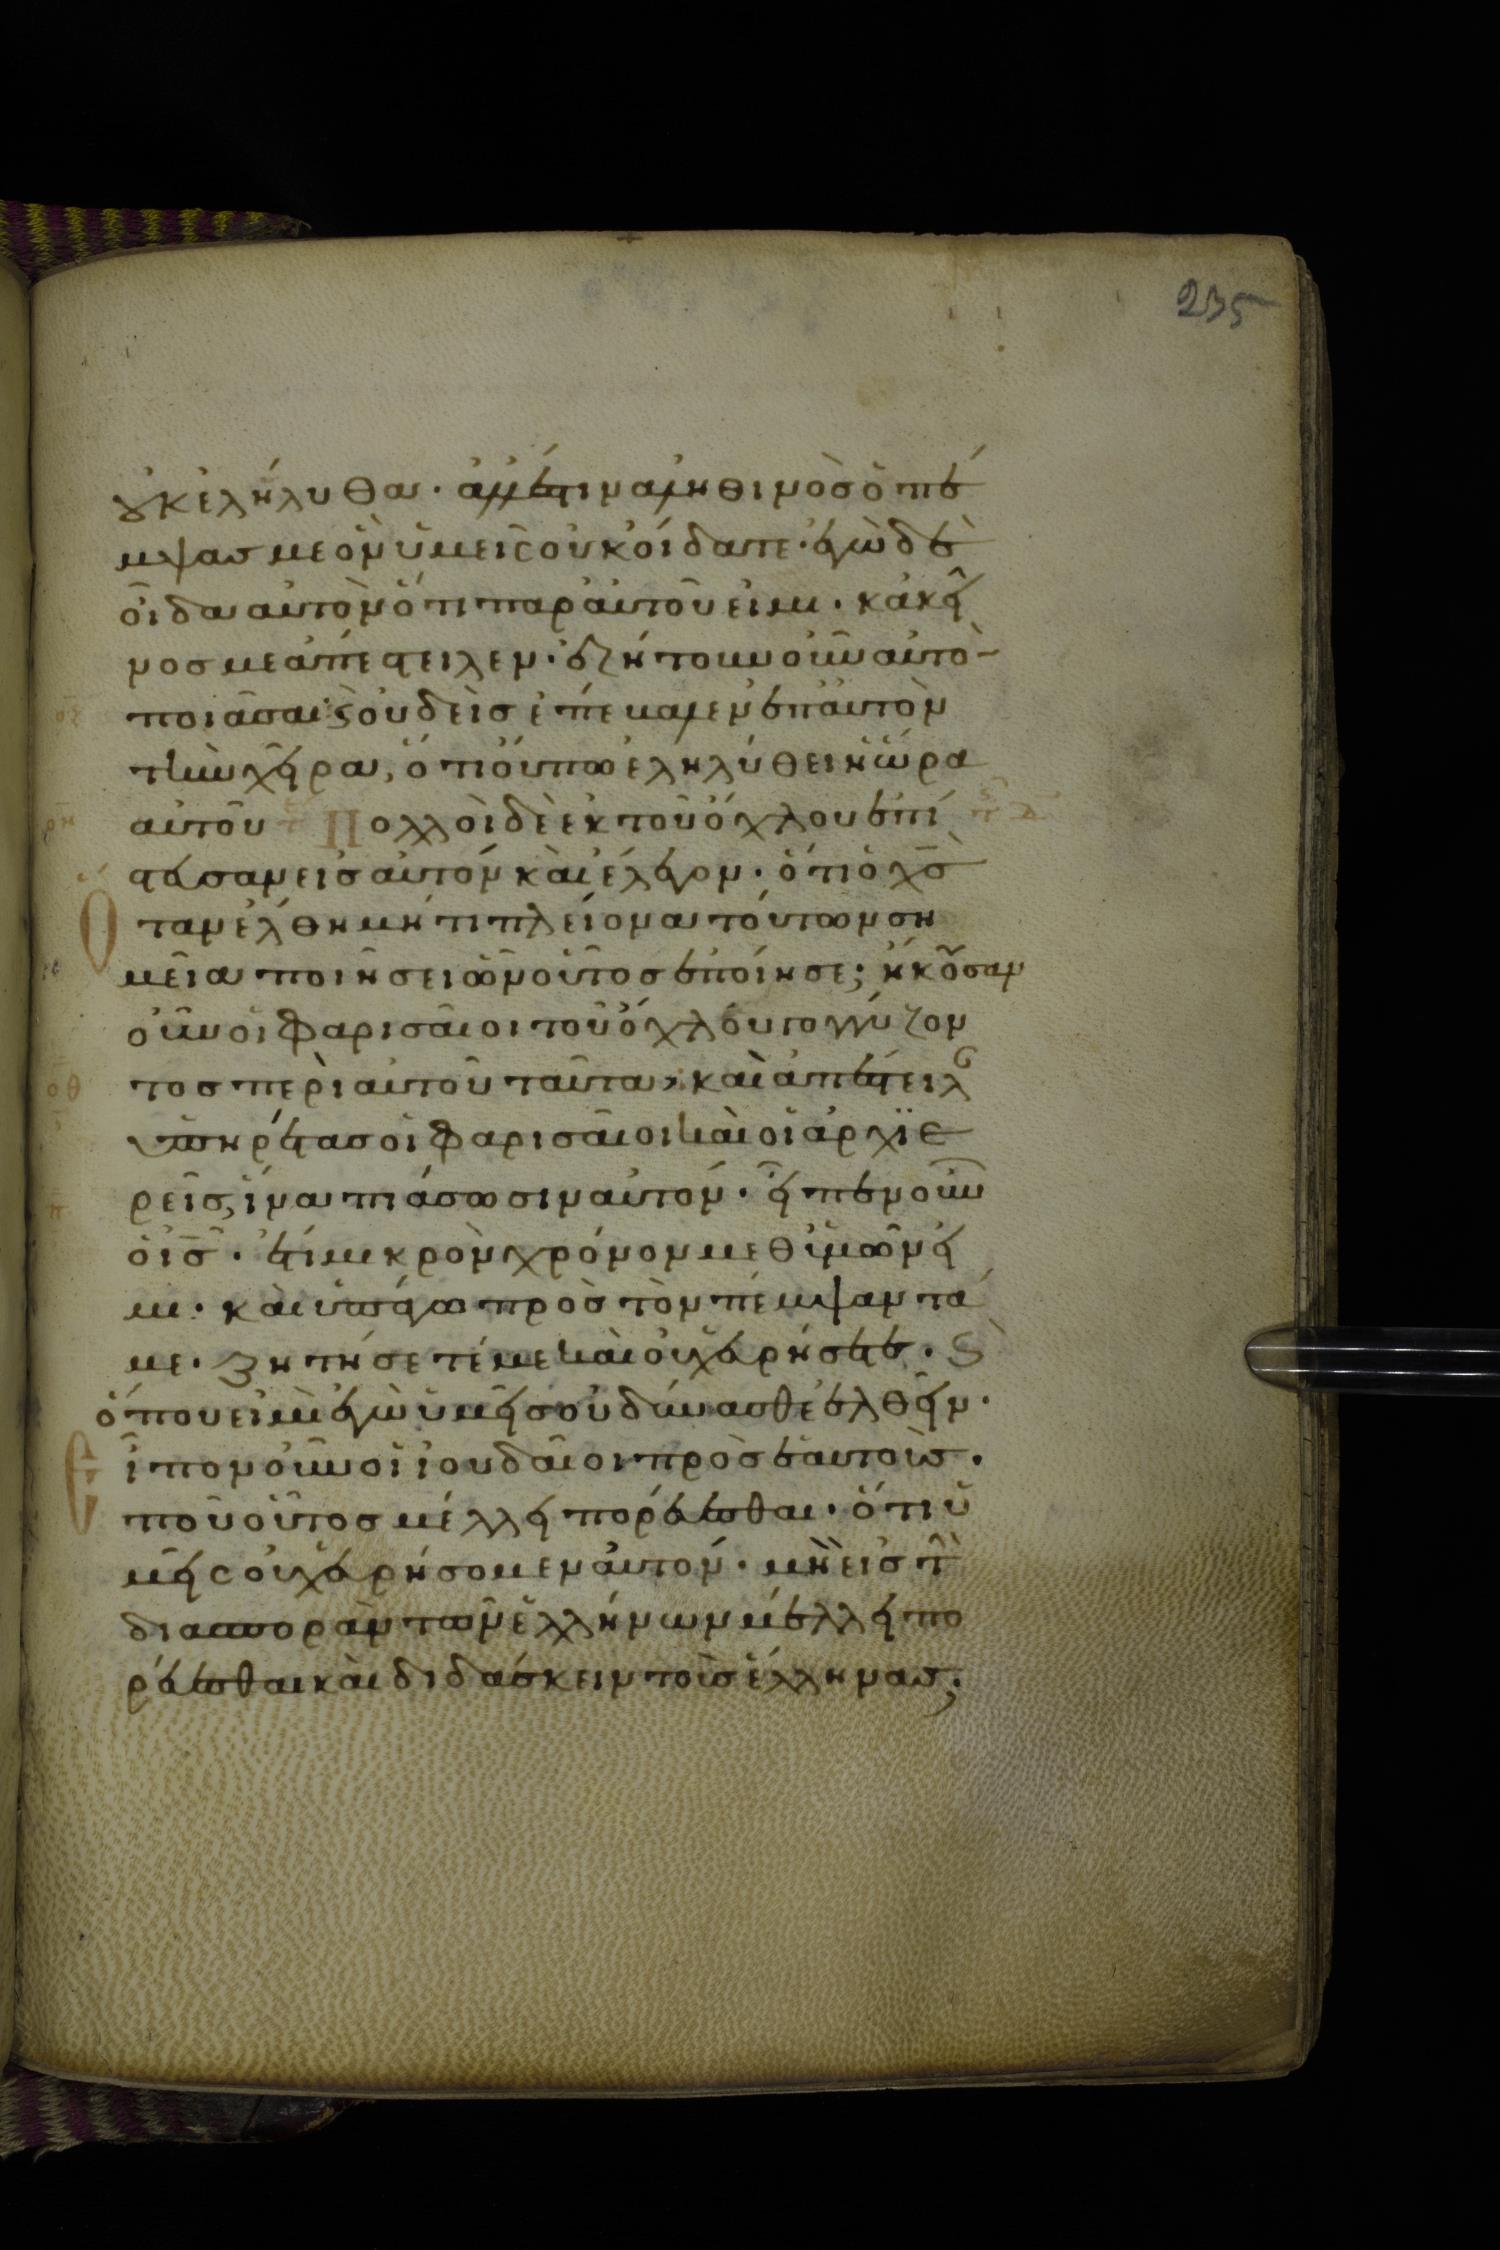 235
οὐκ ἐλήλυθα· ἀλλ' ἔστιν ἀληθινὸς ὁ πέ
μψας με ὃν ὑμεῖς οὐκ οἴδατε· ἐγὼ δὲ
οἶδα αὐτὸν ὅτι παρ' αὐτοῦ εἰμι· κἀκεῖ
νος με ἀπέστειλεν· ἐζήτουν οὖν αὐτὸ-
πιᾶσαι· ϛ οὐδεὶς ἐπέβαλεν ἐπ' αὐτὸν
τὴν χεῖρα, ὅτι οὔπω ἐληλύθει ἡ ὥρα
αὐτοῦ Πολλοὶ δὲ ἐκ τοῦ ὄχλου ἐπί
στευσαν εἰς αὐτόν καὶ ἔλεγον· ὅτι ὁ χς
Ὅταν ἔλθη μή τι πλείονα τούτων ση
μεῖα ποιήσει ὧν οὗτος ἐποίησε; ἤκουσαν
οὖν οἱ φαρισαῖοι τοῦ ὄχλου γογγύζον
τος περὶ αὐτοῦ ταῦτα, καὶ ἀπέστειλ
ὑπηρέτας οἱ φαρισαῖοι καὶ οἱ ἀρχϊε
ρεῖς, ἵνα πιάσωσιν αὐτόν· εἶπεν οὖν
ὁ ις· ἔτι μικρὸν χρόνον μεθ' ὑμῶν εἰ
μι· καὶ ὑπάγω πρὸς τὸν πέμψαντά
με· ζητήσετέ με καὶ οὐχ εὑρήσετε· ϛ
ὅπου εἰμὶ ἐγὼ ὑμεῖς οὐ δύνασθε ἐλθεῖν·
Εἶπον οὖν οἱ ἰουδαῖοι πρὸς ἑαυτοὺς·
ποῦ οὗτος μέλλει πορεύεσθαι· ὅτι ἡ
μεῖς οὐχ εὑρήσομεν αὐτόν· μὴ εἰς τὴ
διασπορὰν τῶν ἑλλήνων μέλλει πο
ρεύεσθαι καὶ διδάσκειν τοὺς ἕλληνας;